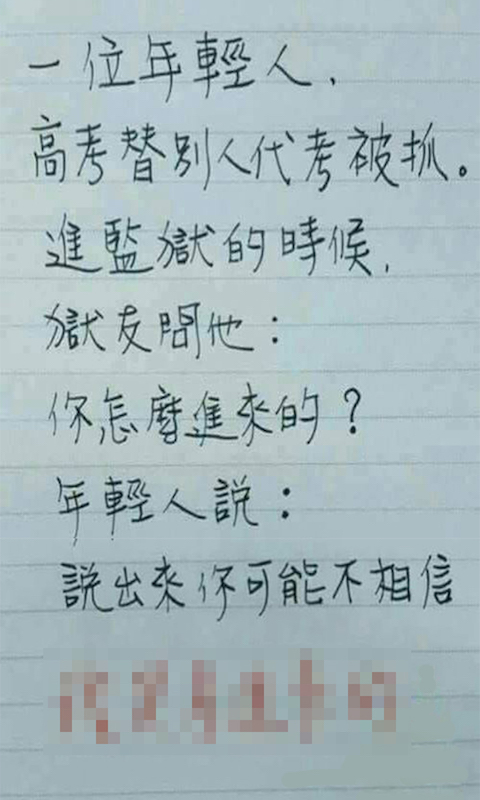 一位年輕人,
高考替別人代考被抓。
進監獄的時候,
獄友問他:
你怎麼進來的?
年輕人說:
說出來你可能不相信